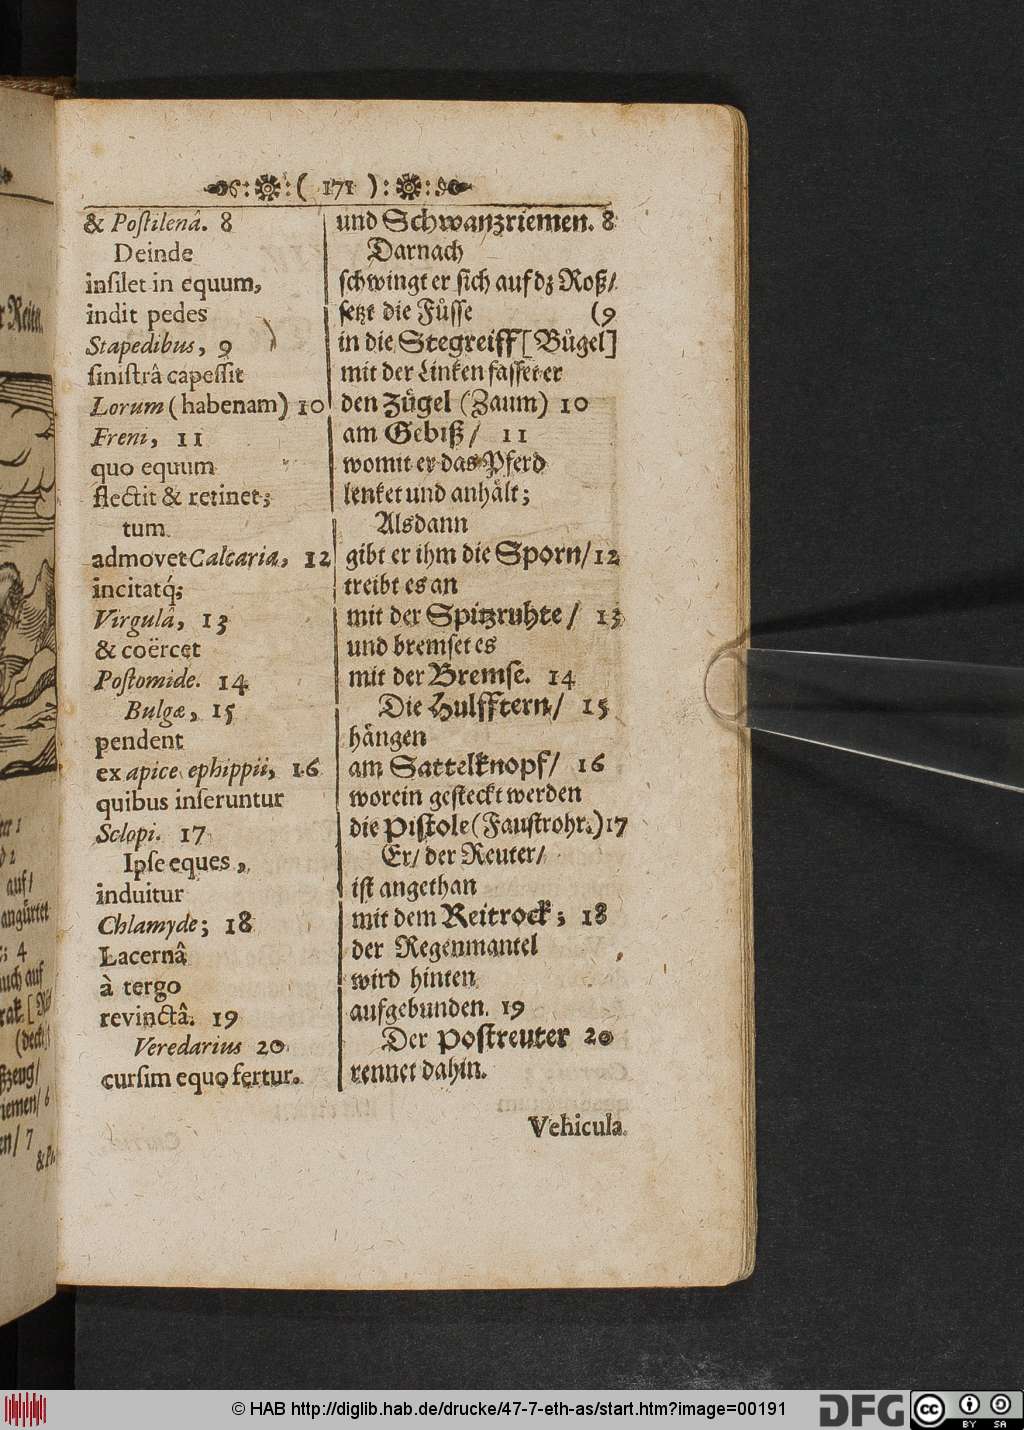 ( 171 )
& Poſtilenâ. 8
Deinde
inſilet in equum,
indit pedes
Stapedibus, 9
ſiniſtrâ capeſſit
Lorum (habenam) 10
Freni, 11
quo equum
flectit & retinet;
tum
admovet Calcaria, 12
incitatq́;
Virgulâ, 13
& coërcet
Poſtomide. 14
Bulgæ, 15
pendent
ex apice ephippii, 16
quibus inſeruntur
Sclopi. 17
Ipſe eques,
induitur
Chlamyde; 18
Lacernâ
à tergo
revinctâ. 19
Veredarius 20
curſim equo fertur.
und Schwanzriemen. 8
Darnach
ſchwingt er ſich auf dz Roß/
ſetzt die Fuͤſſe (9
in die Stegreiff [Buͤgel]
mit der Linken faſſet er
den Zuͤgel (Zaum) 10
am Gebiß/ 11
womit er das Pferd
lenket und anhaͤlt;
Alsdann
gibt er ihm die Sporn/ 12
treibt es an
mit der Spitzruhte/ 13
und bremſet es
mit der Bremſe. 14
Die Hulfftern/ 15
haͤngen
am Sattelknopf/ 16
worein geſteckt werden
die Piſtole (Fauſtrohr.) 17
Er/ der Reuter/
iſt angethan
mit dem Reitrock; 18
der Regenmantel
wird hinten
aufgebunden. 19
Der Poſtreuter 20
rennet dahin.
Vehicula.
r Reite.
auf/
anguͤrtet
; 4
auch auf
(deck
zeug/
riemen/ 6
en/ 7
© HAB http://diglib.hab.de/drucke/47-7-eth-as/start.htm?image=00191
DFG
cc
BY SA